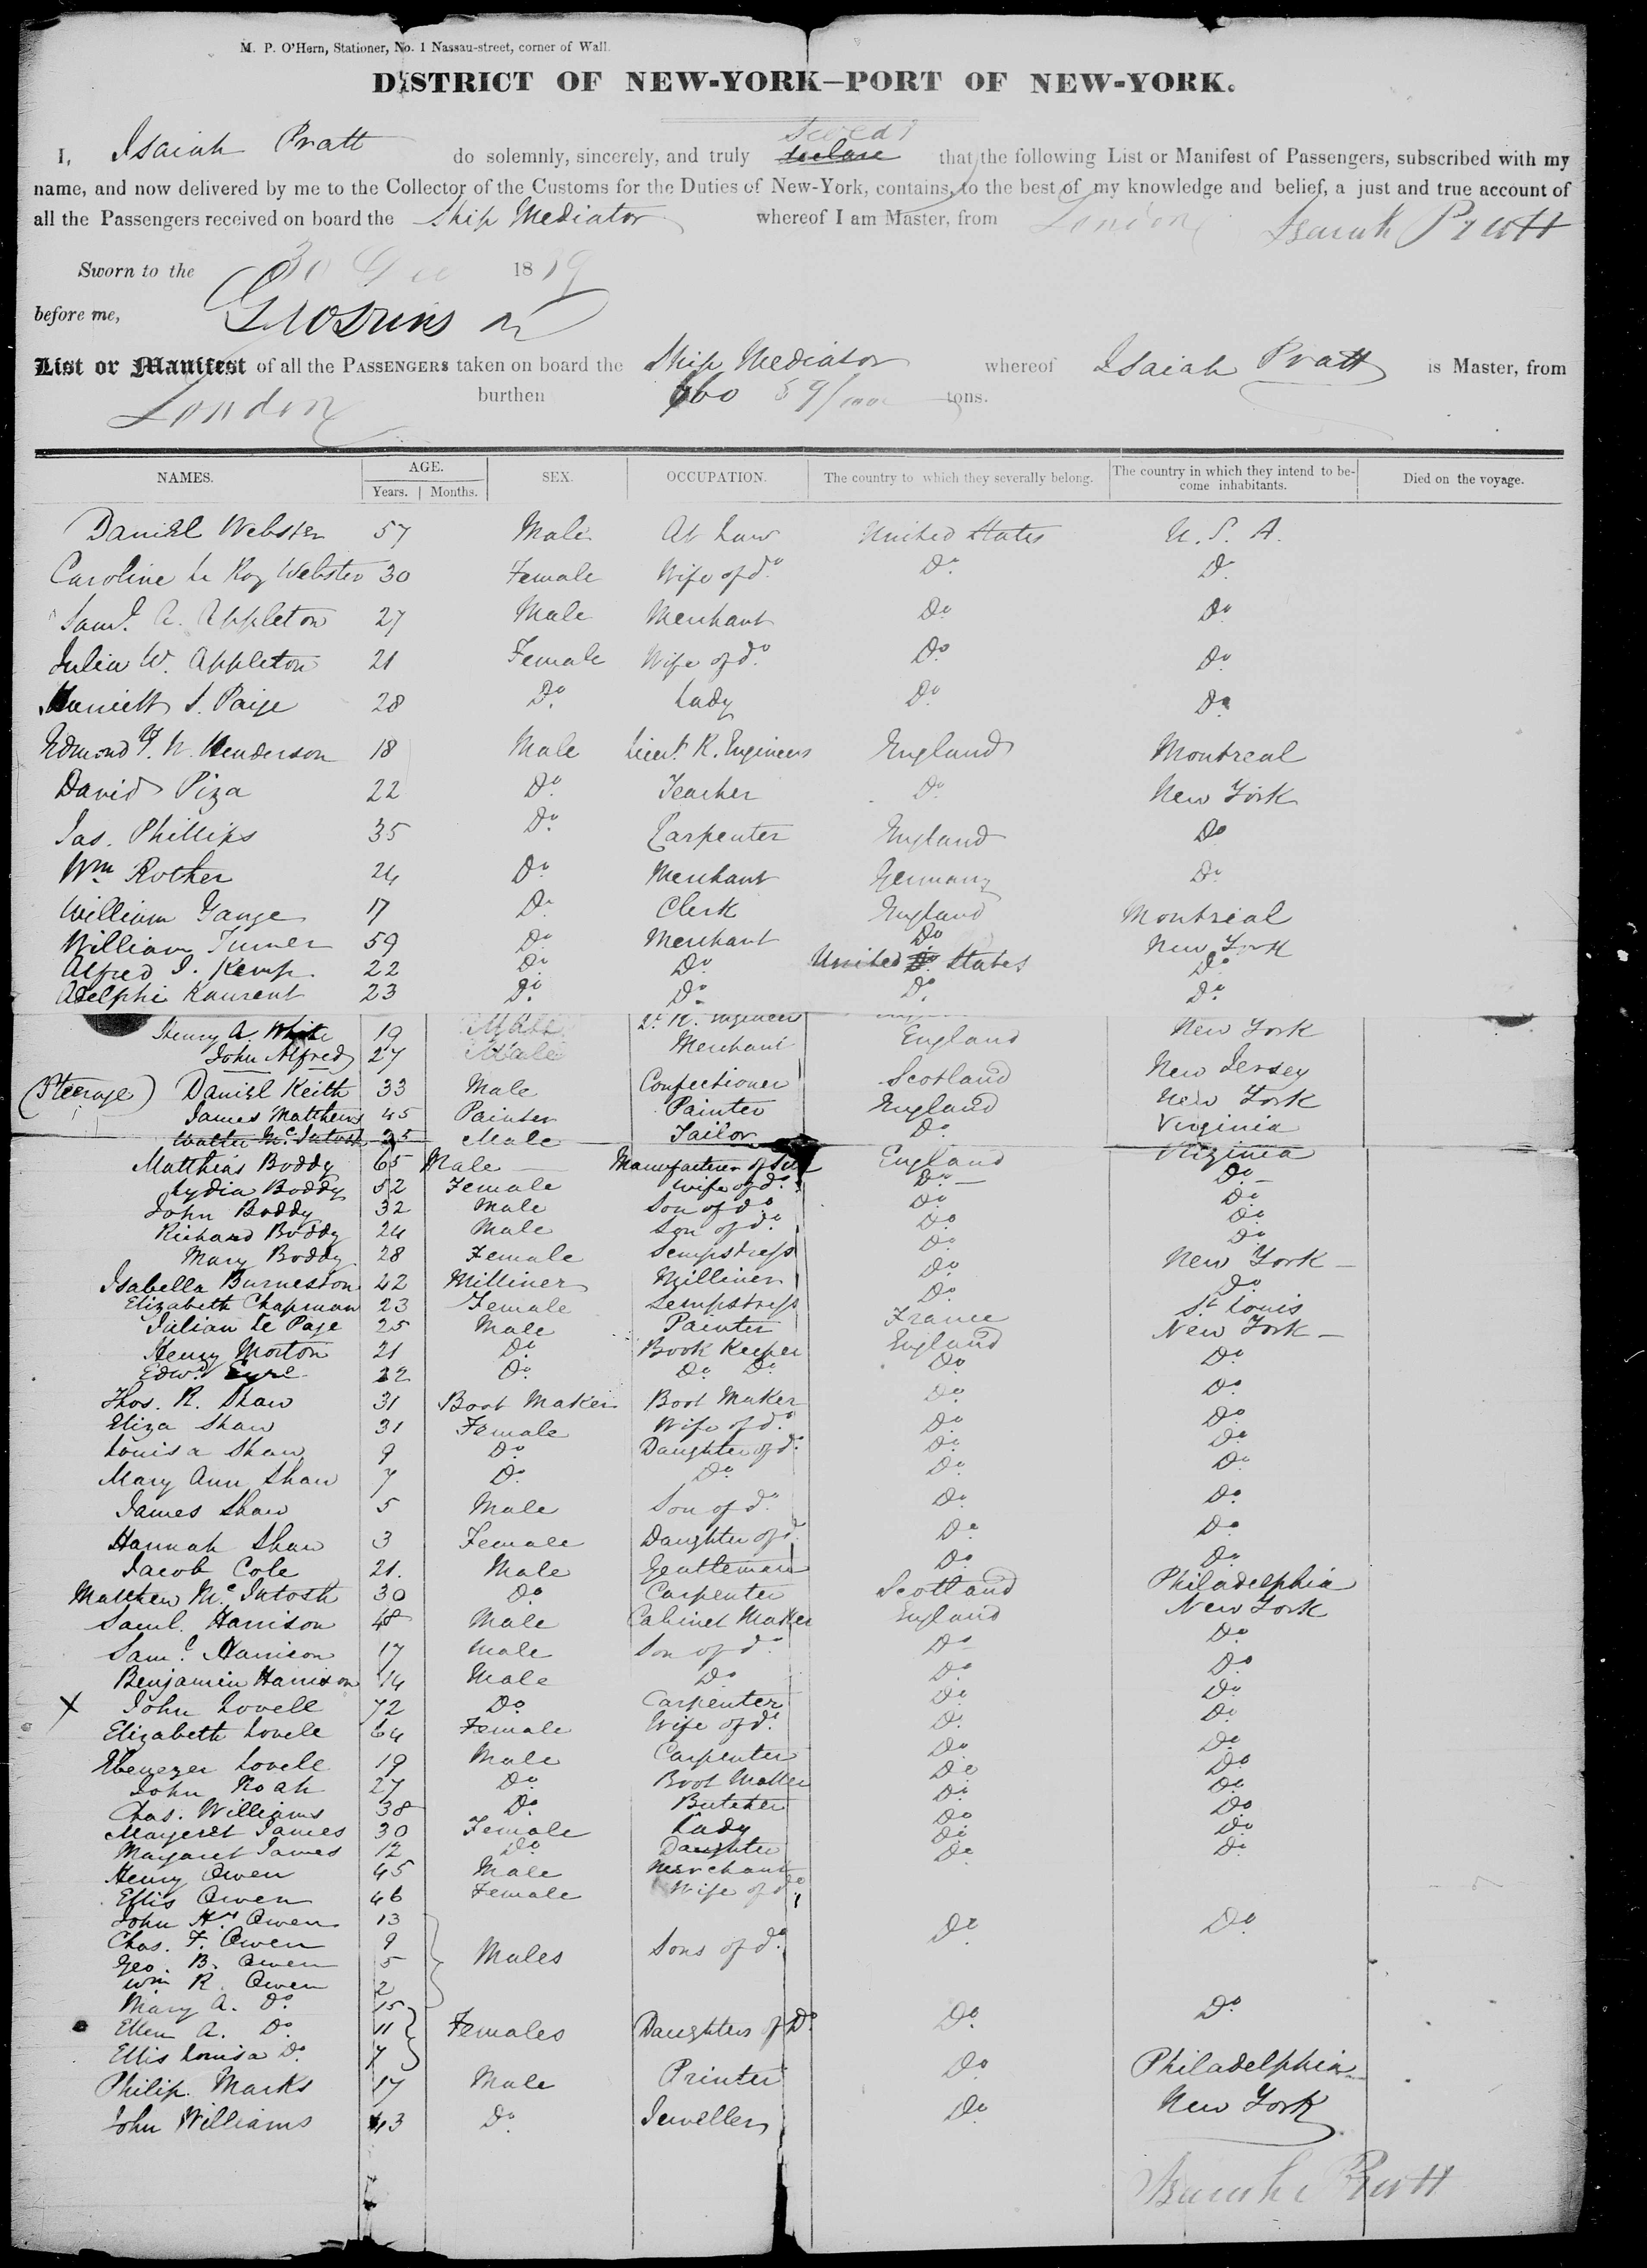 M. P. O'Hern, Stationer, No. 1 Nassau-street, corner of Wall.
DISTRICT OF NEW-YORK—PORT OF NEW-YORK.
I, Isaiah Pratt do solemnly, sincerely, and truly declare that the following List or Manifest of Passengers, subscribed with my
name, and now delivered by me to the Collector of the Customs for the Duties of New-York, contains, to the best of my knowledge and belief, a just and true account of
all the Passengers received on board the Ship Mediator whereof I am Master, from London Isaiah Pratt
Sworn to the 30 18
before me,
List or Manifest of all the PASSENGERS taken on board the Ship Mediator whereof Isaiah Pratt is Master, from
London burthen 660 59/100 tons.
NAMES. AGE. Years. Months. SEX. OCCUPATION. The country to which they severally belong. The country in which they intend to become inhabitants. Died on the voyage.
Daniel Webster 57 Male At Law United States U. S. A.
Caroline Le Roy Webster 30 Female Wife of do. Do. Do.
Saml. A. Appleton 27 Male Merchant Do. Do.
Julia W. Appleton 21 Female Wife of do. Do. Do.
Harriett S. Paige 28 Do. Lady Do. Do.
Edmond Y. W. Henderson 18 Male Lieut. R. Engineers England Montreal
David Piza 22 Do. Teacher Do. New York
Jas. Phillips 35 Do. Carpenter England Do
Wm Rother 24 Do. Merchant Germany Do.
William Gange 17 Do. Clerk England Montreal
William Turner 59 Do. Merchant Do New York
Alfred J. Kemp 22 Do. Do. United States Do.
Adelphi Laurent 23 Do. Do. Do. Do.
Henry A. White 19 Male Lt. R. Engineer New York
John Alfred 27 Male Merchant England
(Steerage) Daniel Keith 33 Male Confectioner Scotland New Jersey
James Matthews 45 Painter Painter England New York
Walter McIntosh 25 Male Tailor Do. Virginia
Matthias Boddy 65 Male Manufacturer of England Virginia
Lydia Boddy 52 Female Wife of do. Do. Do.
John Boddy 32 Male Son of do. Do. Do.
Richard Boddy 24 Male Son of do. Do Do
Mary Boddy 28 Female Sempstress Do. Do
Isabella Burneston 42 Milliner Milliner Do. New York
Elizabeth Chapman 23 Female Sempstress Do. Do.
Julian Le Page 25 Male Painter France St. Louis
Henry Morton 21 Do. Book Keeper England New York
Edwd. Eyre 22 Do. Do. Do. Do. Do.
Thos. R. Shaw 31 Boot Maker Boot Maker Do. Do.
Eliza Shaw 31 Female Wife of do. Do. Do.
Louisa Shaw 9 Do. Daughter of do. Do. Do.
Mary Ann Shaw 7 Do. Do. Do. Do.
James Shaw 5 Male Son of do. Do. Do.
Hannah Shaw 3 Female Daughter of do. Do. Do.
Jacob Cole 21. Male Gentleman Do Do.
Matthew McIntosh 30 Do Carpenter Scotland Philadelphia
Saml. Harrison 48 Male Cabinet Maker England New York
Saml. Harrison 17 Male Son of do. Do Do.
Benjamin Harrison 14 Male Do Do. Do.
X John Lovell 72 Do. Carpenter Do. Do.
Elizabeth Lovell 64 Female Wife of do. Do. Do.
Ebenezer Lovell 19 Male Carpenter Do Do
John Noah 27 Do. Boot Maker Do Do
Chas. Williams 38 Do. Butcher Do. Do
Margeret James 30 Female Lady Do Do
Margaret James 12 Do Daughter Do. Do.
Henry Owen 45 Male Merchant Do. Do.
Ellis Owen 46 Female Wife of do.
John Hy. Owen 13
Chas. F. Owen 9 Males Sons of do. Do. Do
Geo. B. Owen 5
Wm R. Owen 2
Mary A. Do. 15
Ellen A. Do. 11 Females Daughters of Do. Do. Do.
Ellis Louisa Do. 7
Philip Marks 17 Male Printer Do Philadelphia
John Williams 43 Do. Jeweller Do. New York
Isaiah Pratt